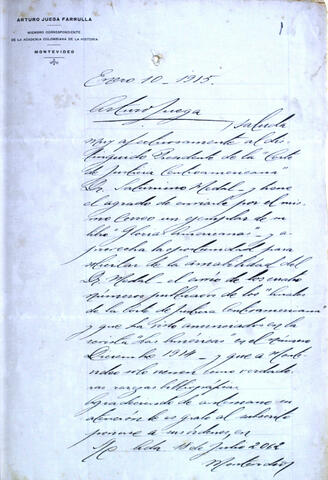 ARTURO JUEGA FARRULLA
MIEMBRO CORRESPONDIENTE
DE LA ACADEMIA COLOMBIANA DE LA HISTORIA
MONTEVIDEO
1
Enero 10 - 1915.
Arturo Juega
saluda
muy afectuosamente al dis-
tinguido Presidente de la Corte
de Justicia Centroamericana
Dr. Saturnino Medal - y tiene
el agrado de enviarle por el mis-
mo correo un ejemplar de su
libro "Glorias - y a-
provecha la oportunidad para
solicitar de la amabilidad del
Dr. Medal - el envío de los cuatro
números publicados de los "Anales
de la Corte de Justicia Centroamericana"
y que ha visto anunciados en la
revista en el número
Diciembre 1914 - y que a Monte-
video solo vienen como verdade-
ras rarezas bibliográficas.
Agradeciendo de antemano su
atención le es grato al
ponerse a sus órdenes, en
18 de Julio 2062
Montevideo